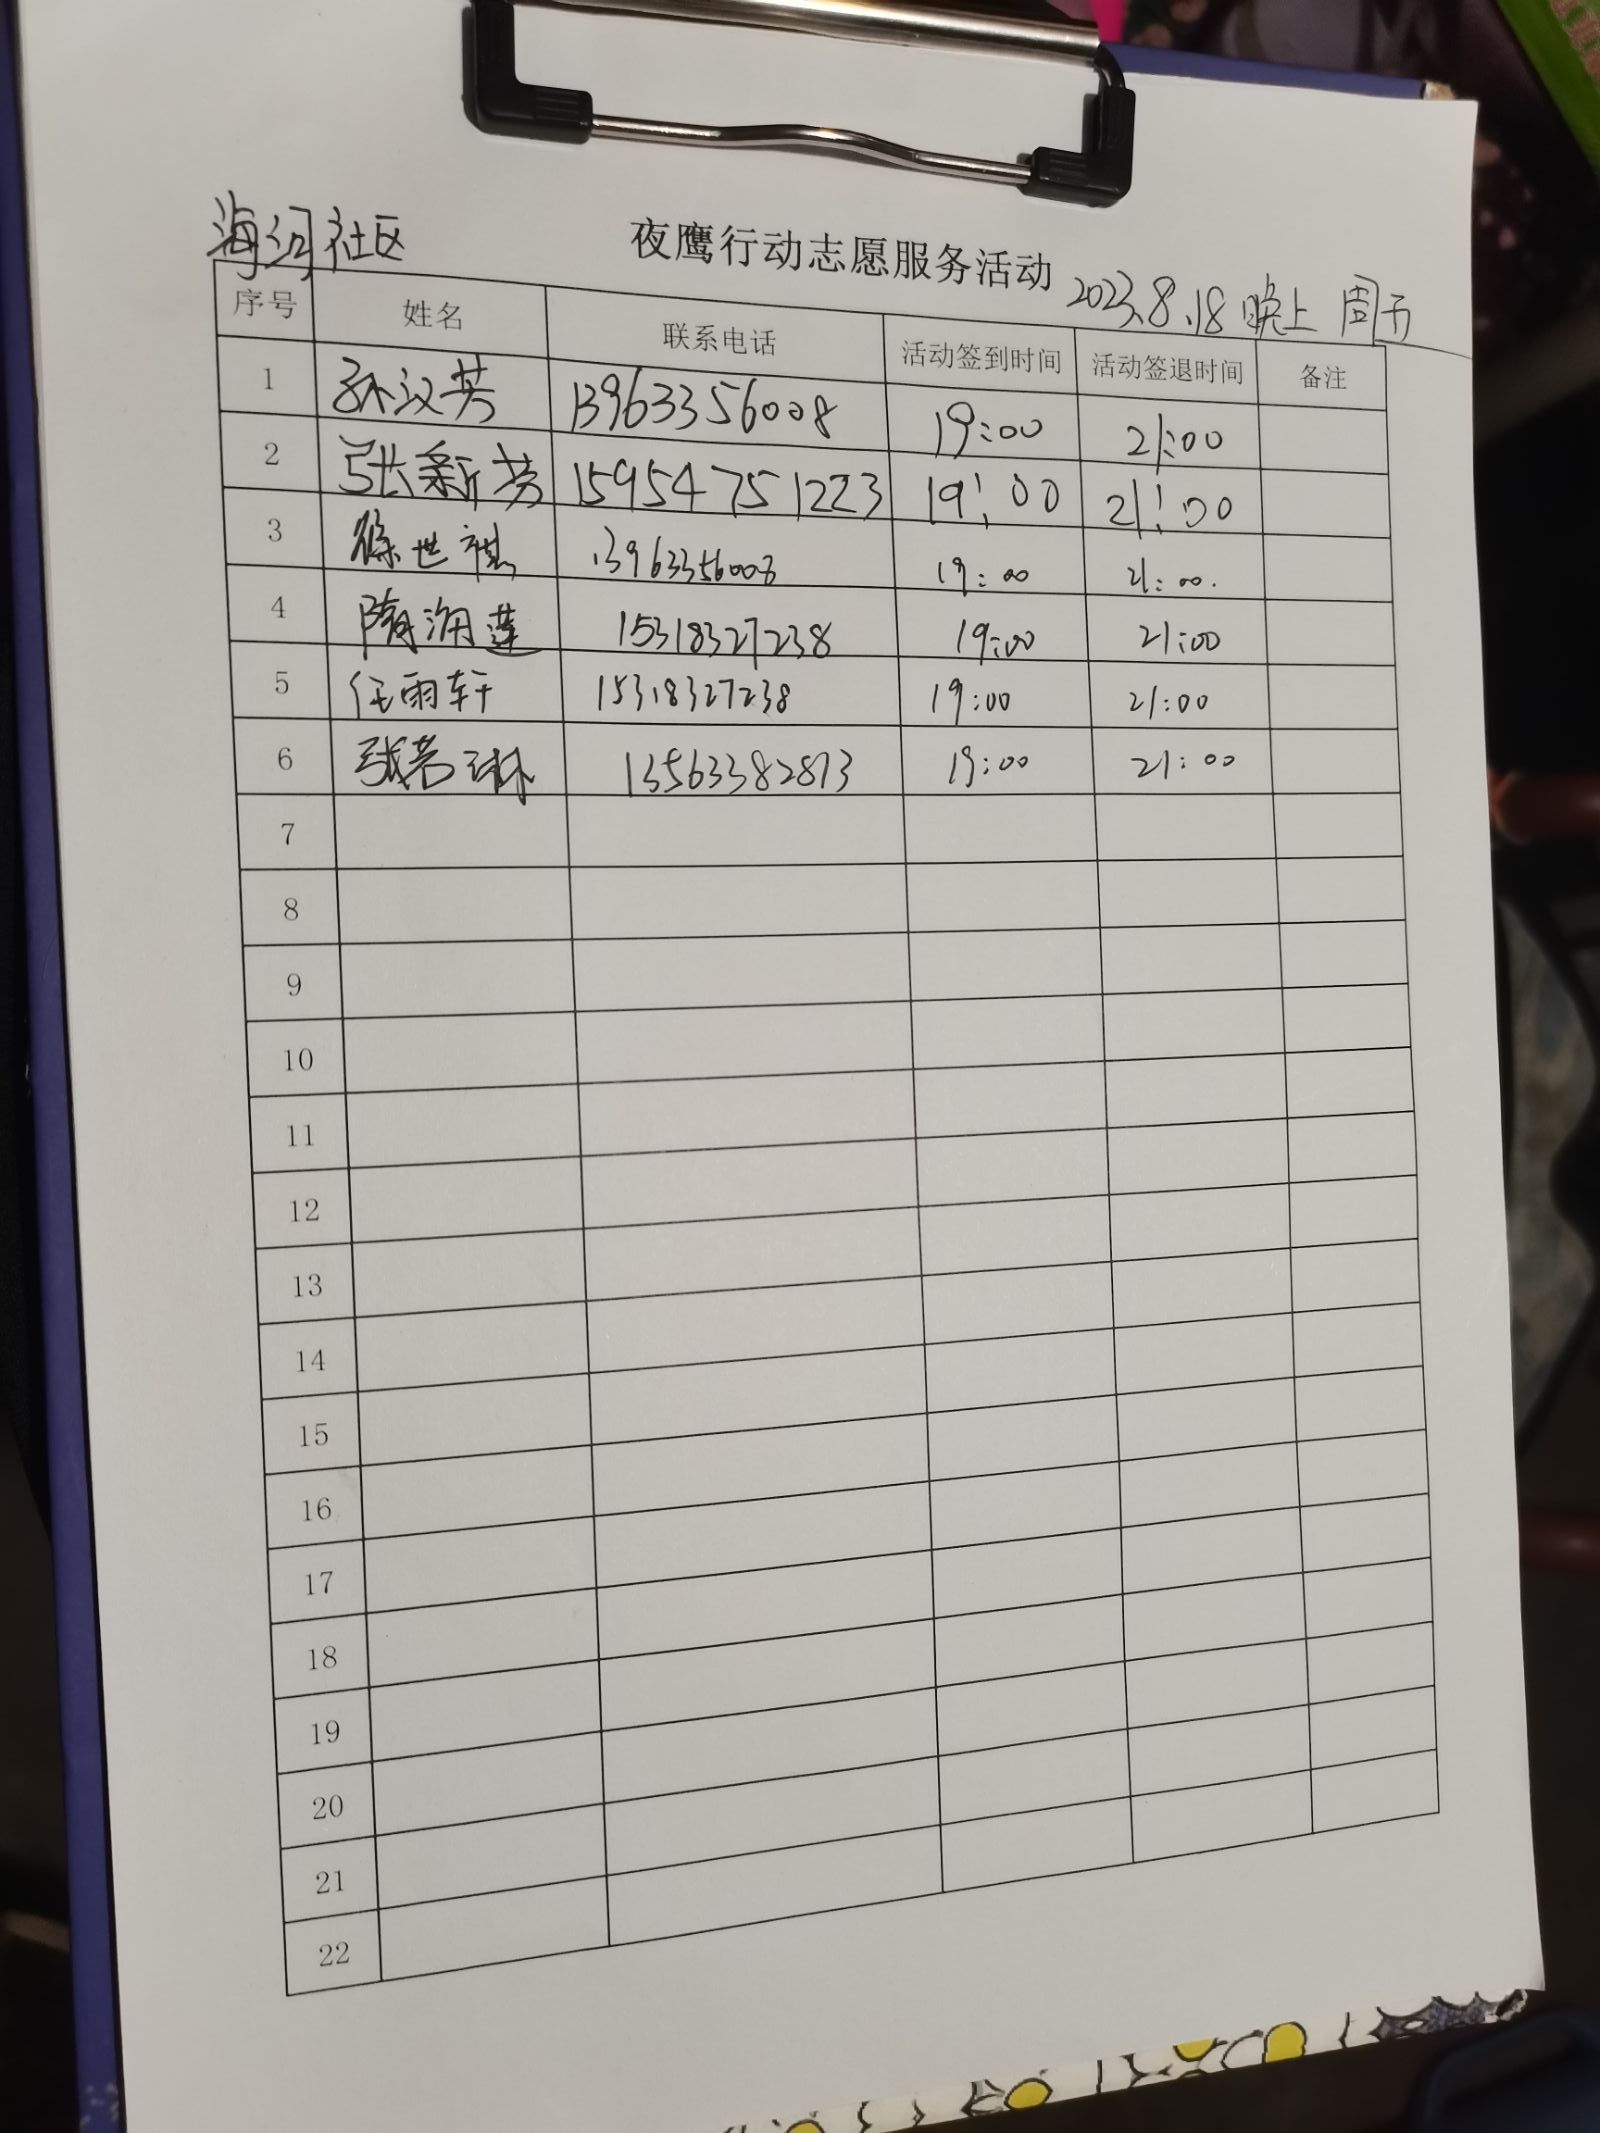 海河社区
夜鹰行动志愿服务活动
2023.8.18 晚上 周五
序号 姓名 联系电话 活动签到时间 活动签退时间 备注
1 孙汉芳 13963356008 19:00 21:00
2 张新芳 15954751223 19:00 21:00
3 徐世祺 13963356008 19:00 21:00.
4 隋海莲 15318327238 19:00 21:00
5 任雨轩 15318327238 19:00 21:00
6 张若琳 13563382873 19:00 21:00
7
8
9
10
11
12
13
14
15
16
17
18
19
20
21
22